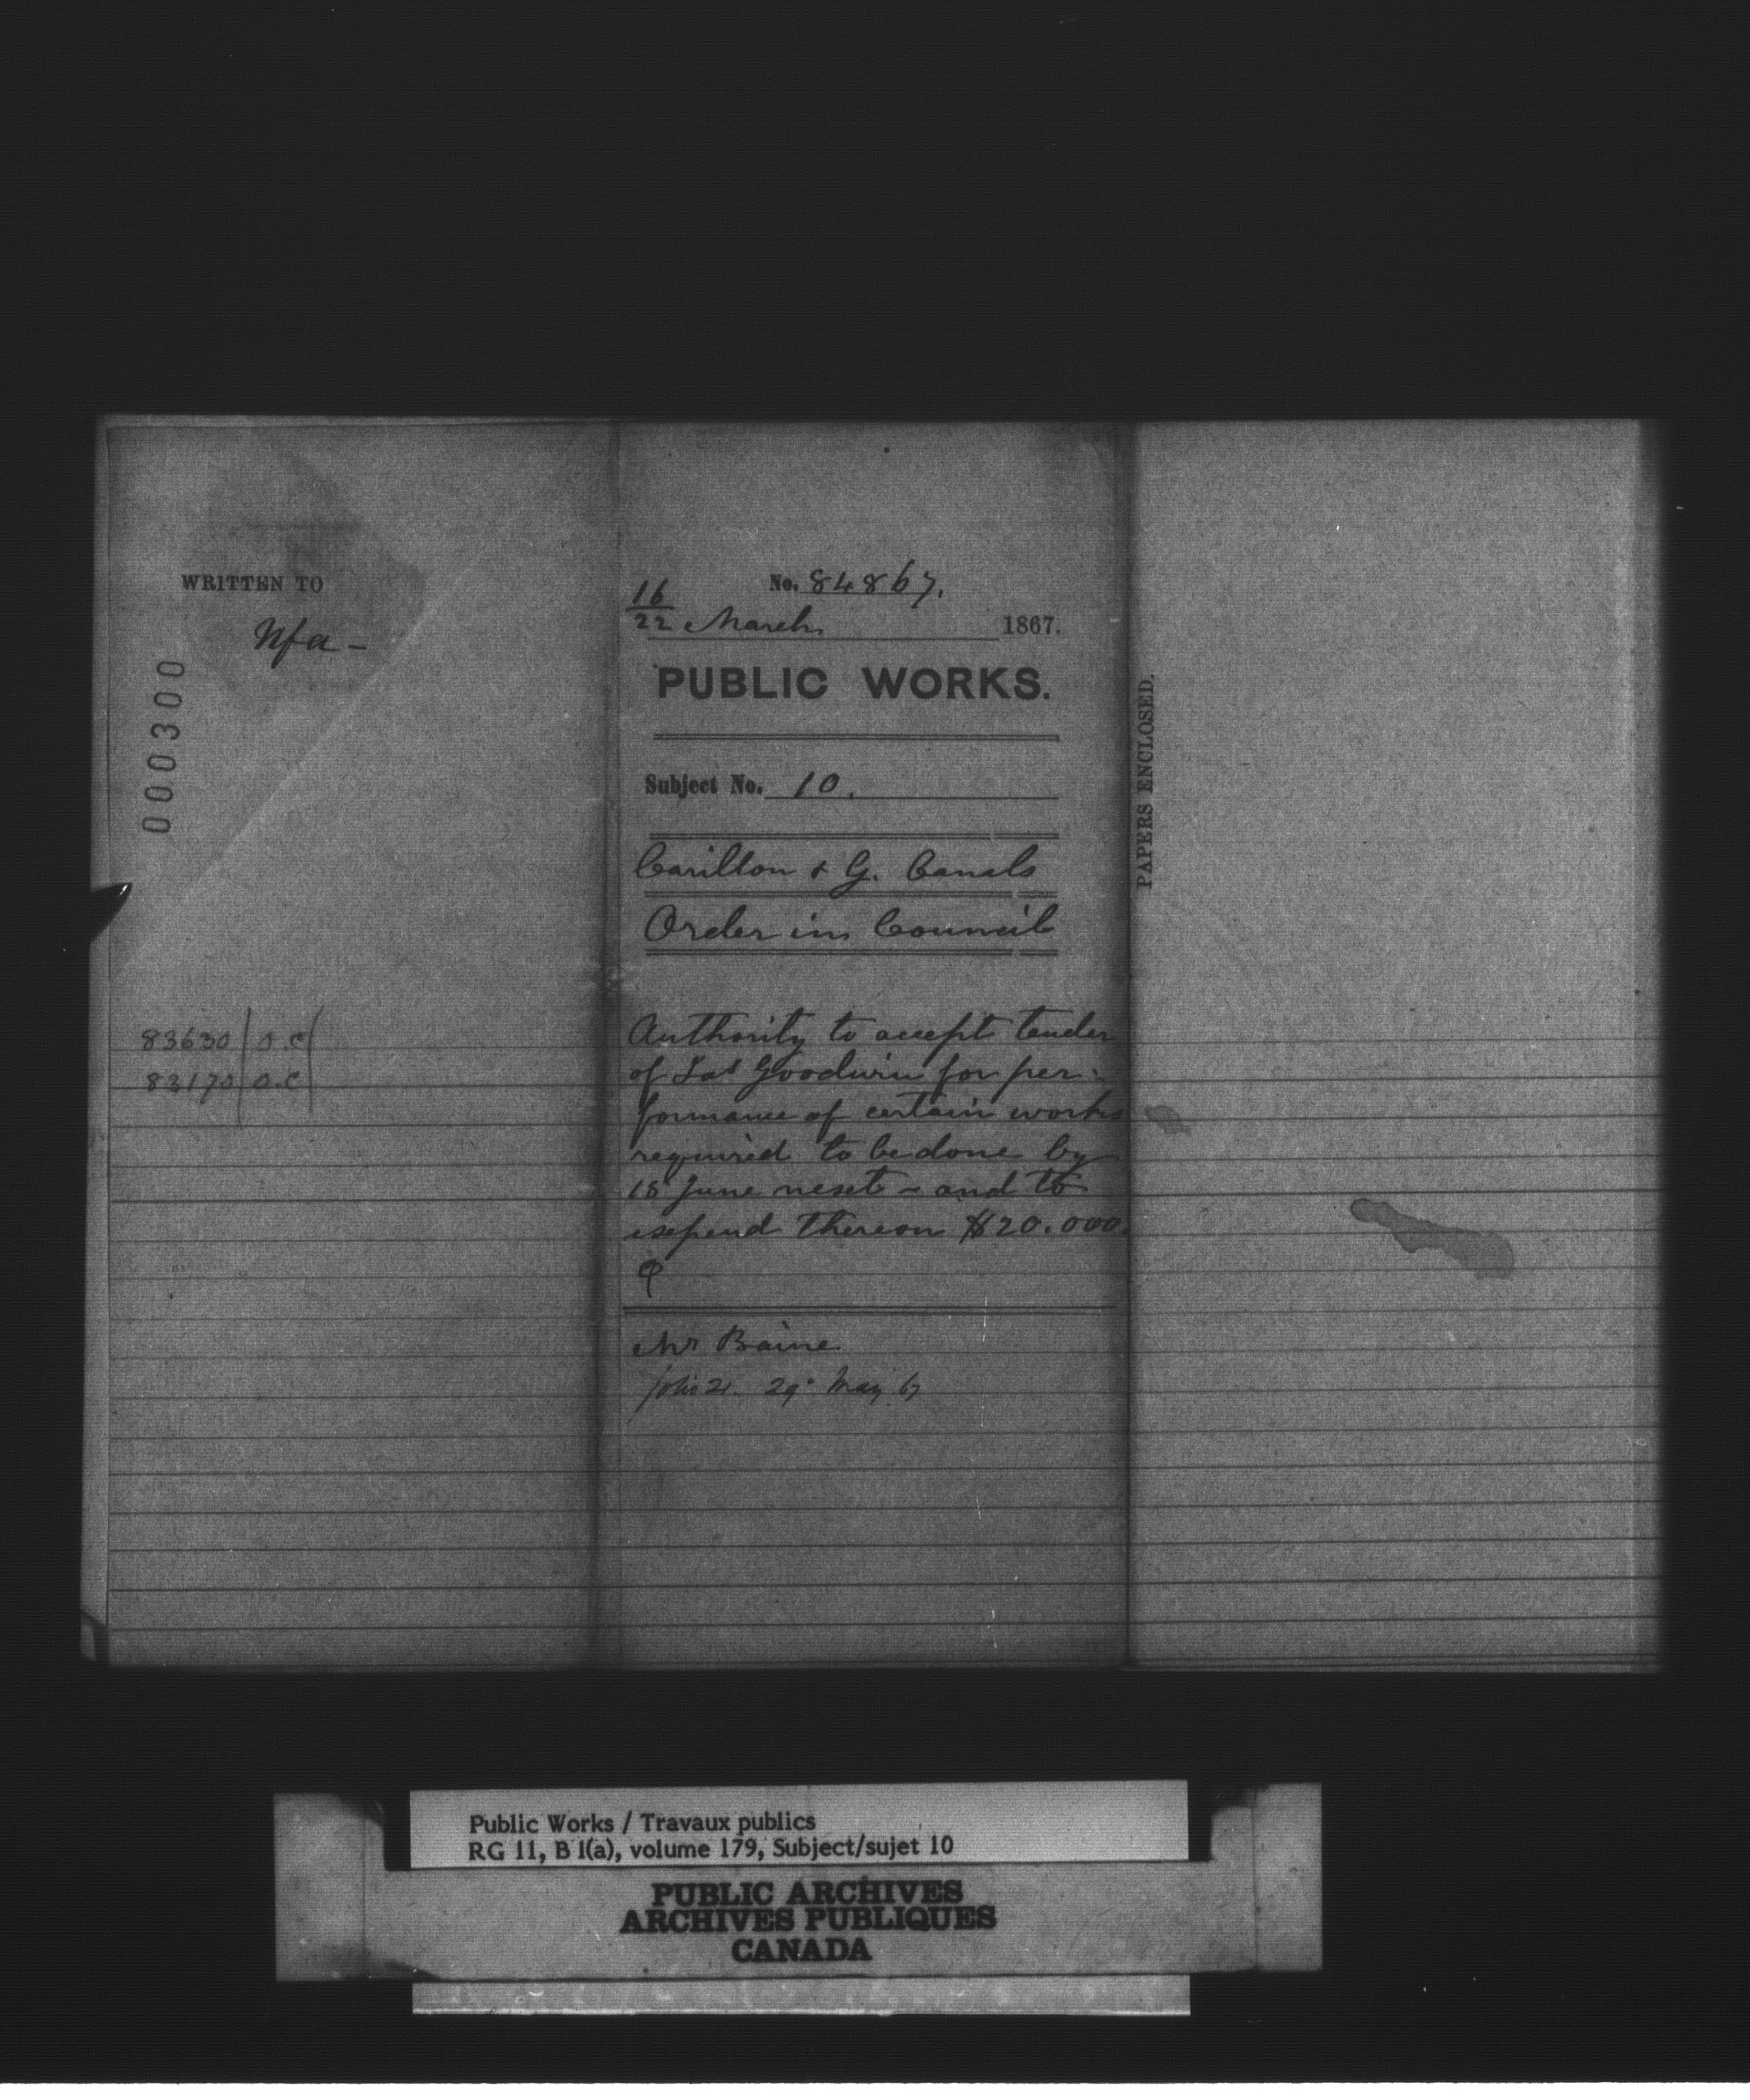 WRITTEN TO
Nfa -
000300
83630 / O.C
83170 / O.C
No. 84867.
16
22 March 1867.
PUBLIC WORKS.
Subject No. 10.
Carillon & G. Canals
Order in Council
Authority to accept tender
of Jas Goodwin for per:
formance of certain works
required to be done by
15 June next - and to
expend thereon $20.000.
Mr Baine
folio 21. 29 May 67
PAPERS ENCLOSED.
Public Works / Travaux publics
RG 11, B 1(a), volume 179, Subject/sujet 10
PUBLIC ARCHIVES
ARCHIVES PUBLIQUES
CANADA